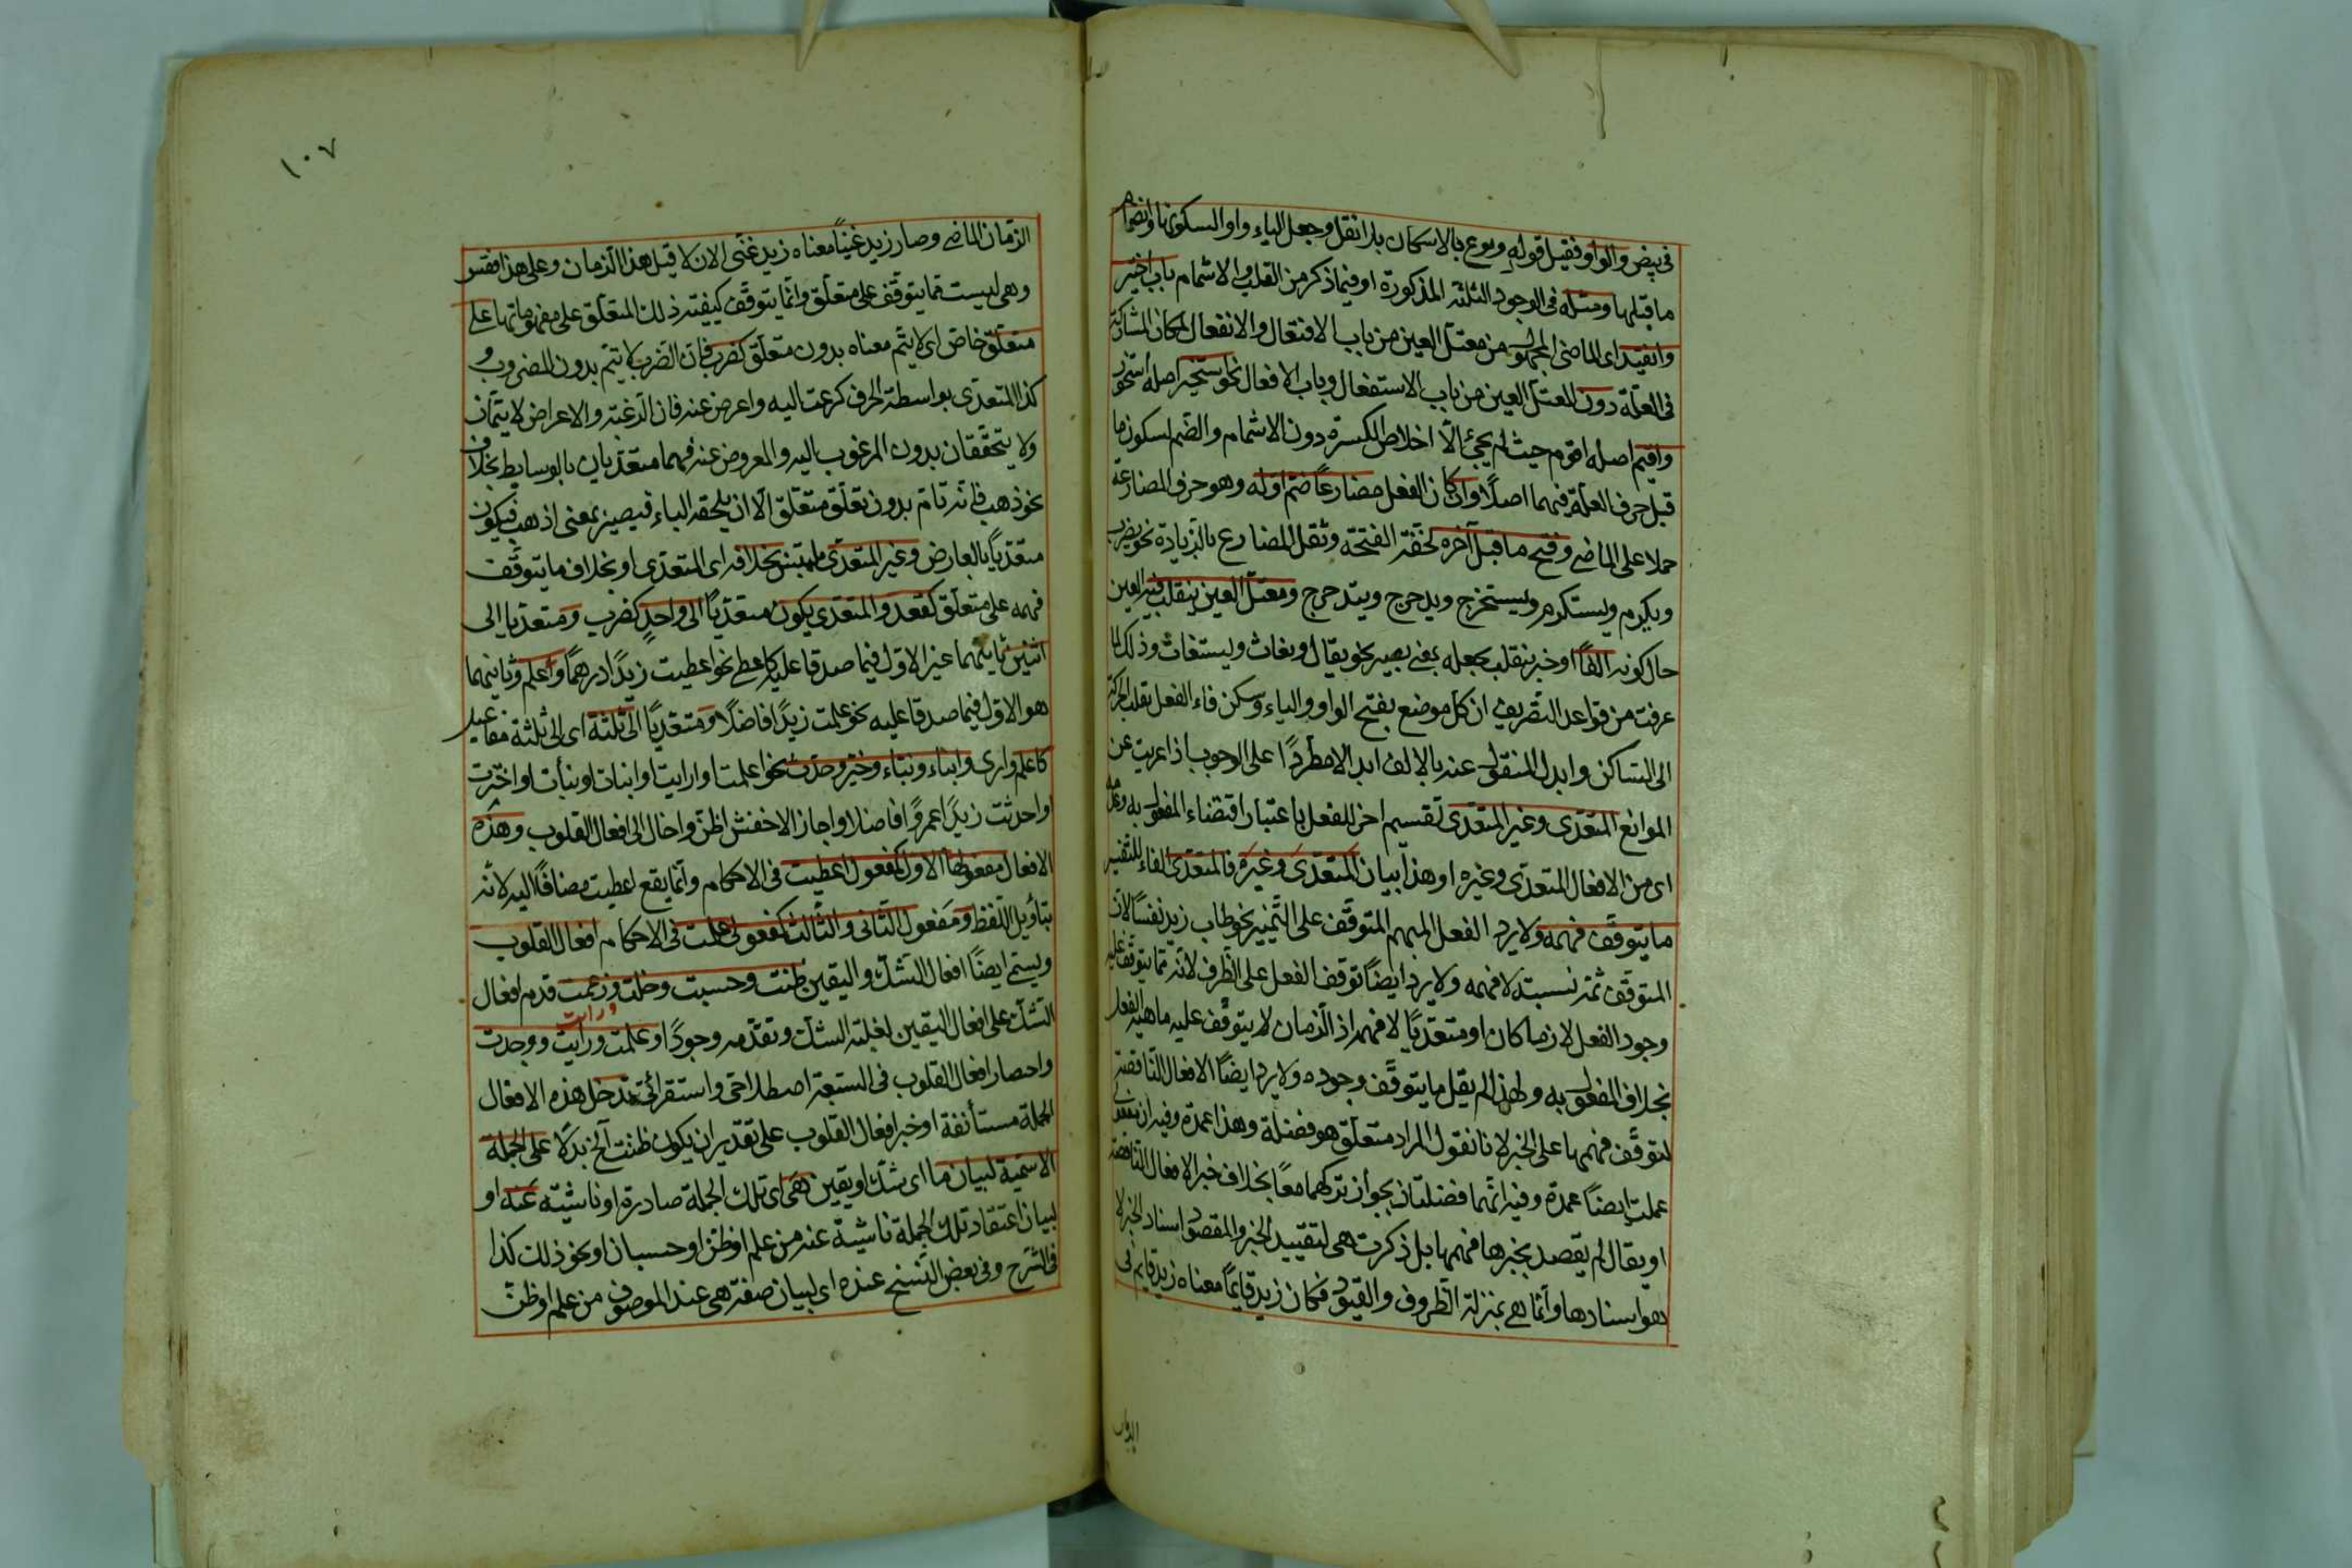 فى بيض والواو فقيل قوله وبوع بالاسكان بلا نقل وجعل الياء واوا لسكونها وانضمام
ما قبلها ومثله فى الوجوه الثلثة المذكورة او فيما ذكر من القلب والاشمام باب اختير
وانقيد اى الماضى المجهول من معتل العين من باب الافتعال والانفعال لمكان المشاركة
فى العلة دون المعتل العين من باب الاستفعال وباب الافعال نحو استخير اصله استخور
واقيم اصله اقوم حيث لم يجئ الا اخلاص الكسرة دون الاشمام والضم لسكون ما
قبل حرف العلة فيهما اصلا وان كان الفعل مضارعا ضم اوله وهو حرف المضارعة
حملا على الماضى وفتح ما قبل آخره لخفة الفتحة وثقل المضارع بالزيادة نحو يضرب
ويكرم ويستكرم ويستخرج ويدحرج ويتدحرج ومعتل العين ينقلب فيه العين
حال كونه الفا او خبر ينقلب بجعله بمعنى يصير نحو يقال ويغاث ويستغاث وذلك لما
عرفت من قواعد التصريف ان كل موضع بفتح الواو والياء وسكن فاء الفعل نقلت الحركة
الى الساكن وابدل المنقول عنه بالالف ابدالا مطردا على الوجوب اذا عريت عن
الموانع المتعدى وغير المتعدى تقسيم اخر للفعل باعتبار اقتضاء المفعول به وعدمه
اى من الافعال المتعدى وغيره او هذا بيان المتعدى وغيره فالمتعدى الفاء للتفسير
ما يتوقف فهمه ولا يرد الفعل المبهم المتوقف على التمييز نحو طاب زيد نفسا لان
المتوقف ثمه نسبته لا فهمه ولا يرد ايضا توقف الفعل على الظرف لانه مما يتوقف عليه
وجود الفعل لازما كان او متعديا لا فهمه اذ الزمان لا يتوقف عليه ماهية الفعل
بخلاف المفعول به ولهذا لم يقل ما يتوقف وجوده ولا يرد ايضا الافعال الناقصة
لتوقف فهمها على الخبر لانا نقول المراد متعلق هو فضلة وهذا عمدة وفيه ان مفعولى
علمت ايضا عمدة وفيه انهما فضلتان بجواز تركهما معا بخلاف خبر الافعال الناقصة
او يقال لم يقصد بخبرها فهمها بل ذكرت هى لتقييد الخبر والمقصود اسناد الخبر لا
هو اسنادها وانما هى بمنزلة الظروف والقيود فكان زيد قايما معناه زيد قايم فى
الزمان
١٠٧
الزمان الماضى وصار زيد غنيا معناه زيد غنى الان لا قبل هذا الزمان وعلى هذا فقس
وهى ليست مما يتوقف على متعلق وانما يتوقف كيفية ذلك المتعلق على مفهوماتها على
متعلق خاص اى لا يتم معناه بدون متعلق كضرب فان الضرب لا يتم بدون المضروب و
كذا المتعدى بواسطة الحرف كرغبت اليه واعرض عنه فان الرغبة والاعراض لا يتمان
ولا يتحققان بدون المرغوب اليه والمعروض عنه فهما متعديان بالوسايط بخلاف
نحو ذهب فانه تام بدون تعلق متعلق الا ان يلحقه الباء فيصير بمعنى اذهب فيكون
متعديا بالعارض وغير المتعدى ملتبس بخلافه اى المتعدى او بخلاف ما يتوقف
فهمه على متعلق كقعد والمتعدى يكون متعديا الى واحد كضرب ومتعديا الى
اثنين ثانيهما غير الاول فيما صدقا عليه كاعطى نحو اعطيت زيدا درهما واعلم وثانيهما
هو الاول فيما صدقا عليه نحو علمت زيدا فاضلا ومتعديا الى ثلثة اى الى ثلثة مفاعيل
كاعلم وارى وانباء ونباء وخبر وحدث نحو اعلمت او ارايت او انبات او نبأت او اخبرت
او احدثت زيدا عمروا فاضلا واجاز الاخفش اظن واخال الى افعال القلوب وهذه
الافعال مفعولها الاول كمفعول اعطيت فى الاحكام وانما يقع اعطيت مضافا اليه لانه
بتأويل اللفظ ومفعول الثانى والثالث كمفعولى علمت فى الاحكام افعال القلوب
ويسمى ايضا افعال الشك واليقين ظننت وحسبت وخلت وزعمت قدم افعال
الشك على افعال اليقين لغلبة الشك وتقدمه وجودا وعلمت ورايت ووجدت
ورايت
وانحصار افعال القلوب فى السبعة اصطلاحى واستقرائى تدخل هذه الافعال
الجملة مستأنفة او خبر افعال القلوب على تقدير ان يكون ظننت آلخ بدلا على الجملة
الاسمية لبيان ما اى شك او يقين هى اى تلك الجملة صادرة او ناشية عنه او
لبيان اعتقاد تلك الجملة ناشية عنه من علم او ظن او حسبان او نحو ذلك كذا
فى الشرح وفى بعض النسخ عنده اى لبيان صفة هى عند الموصوف من علم او ظن